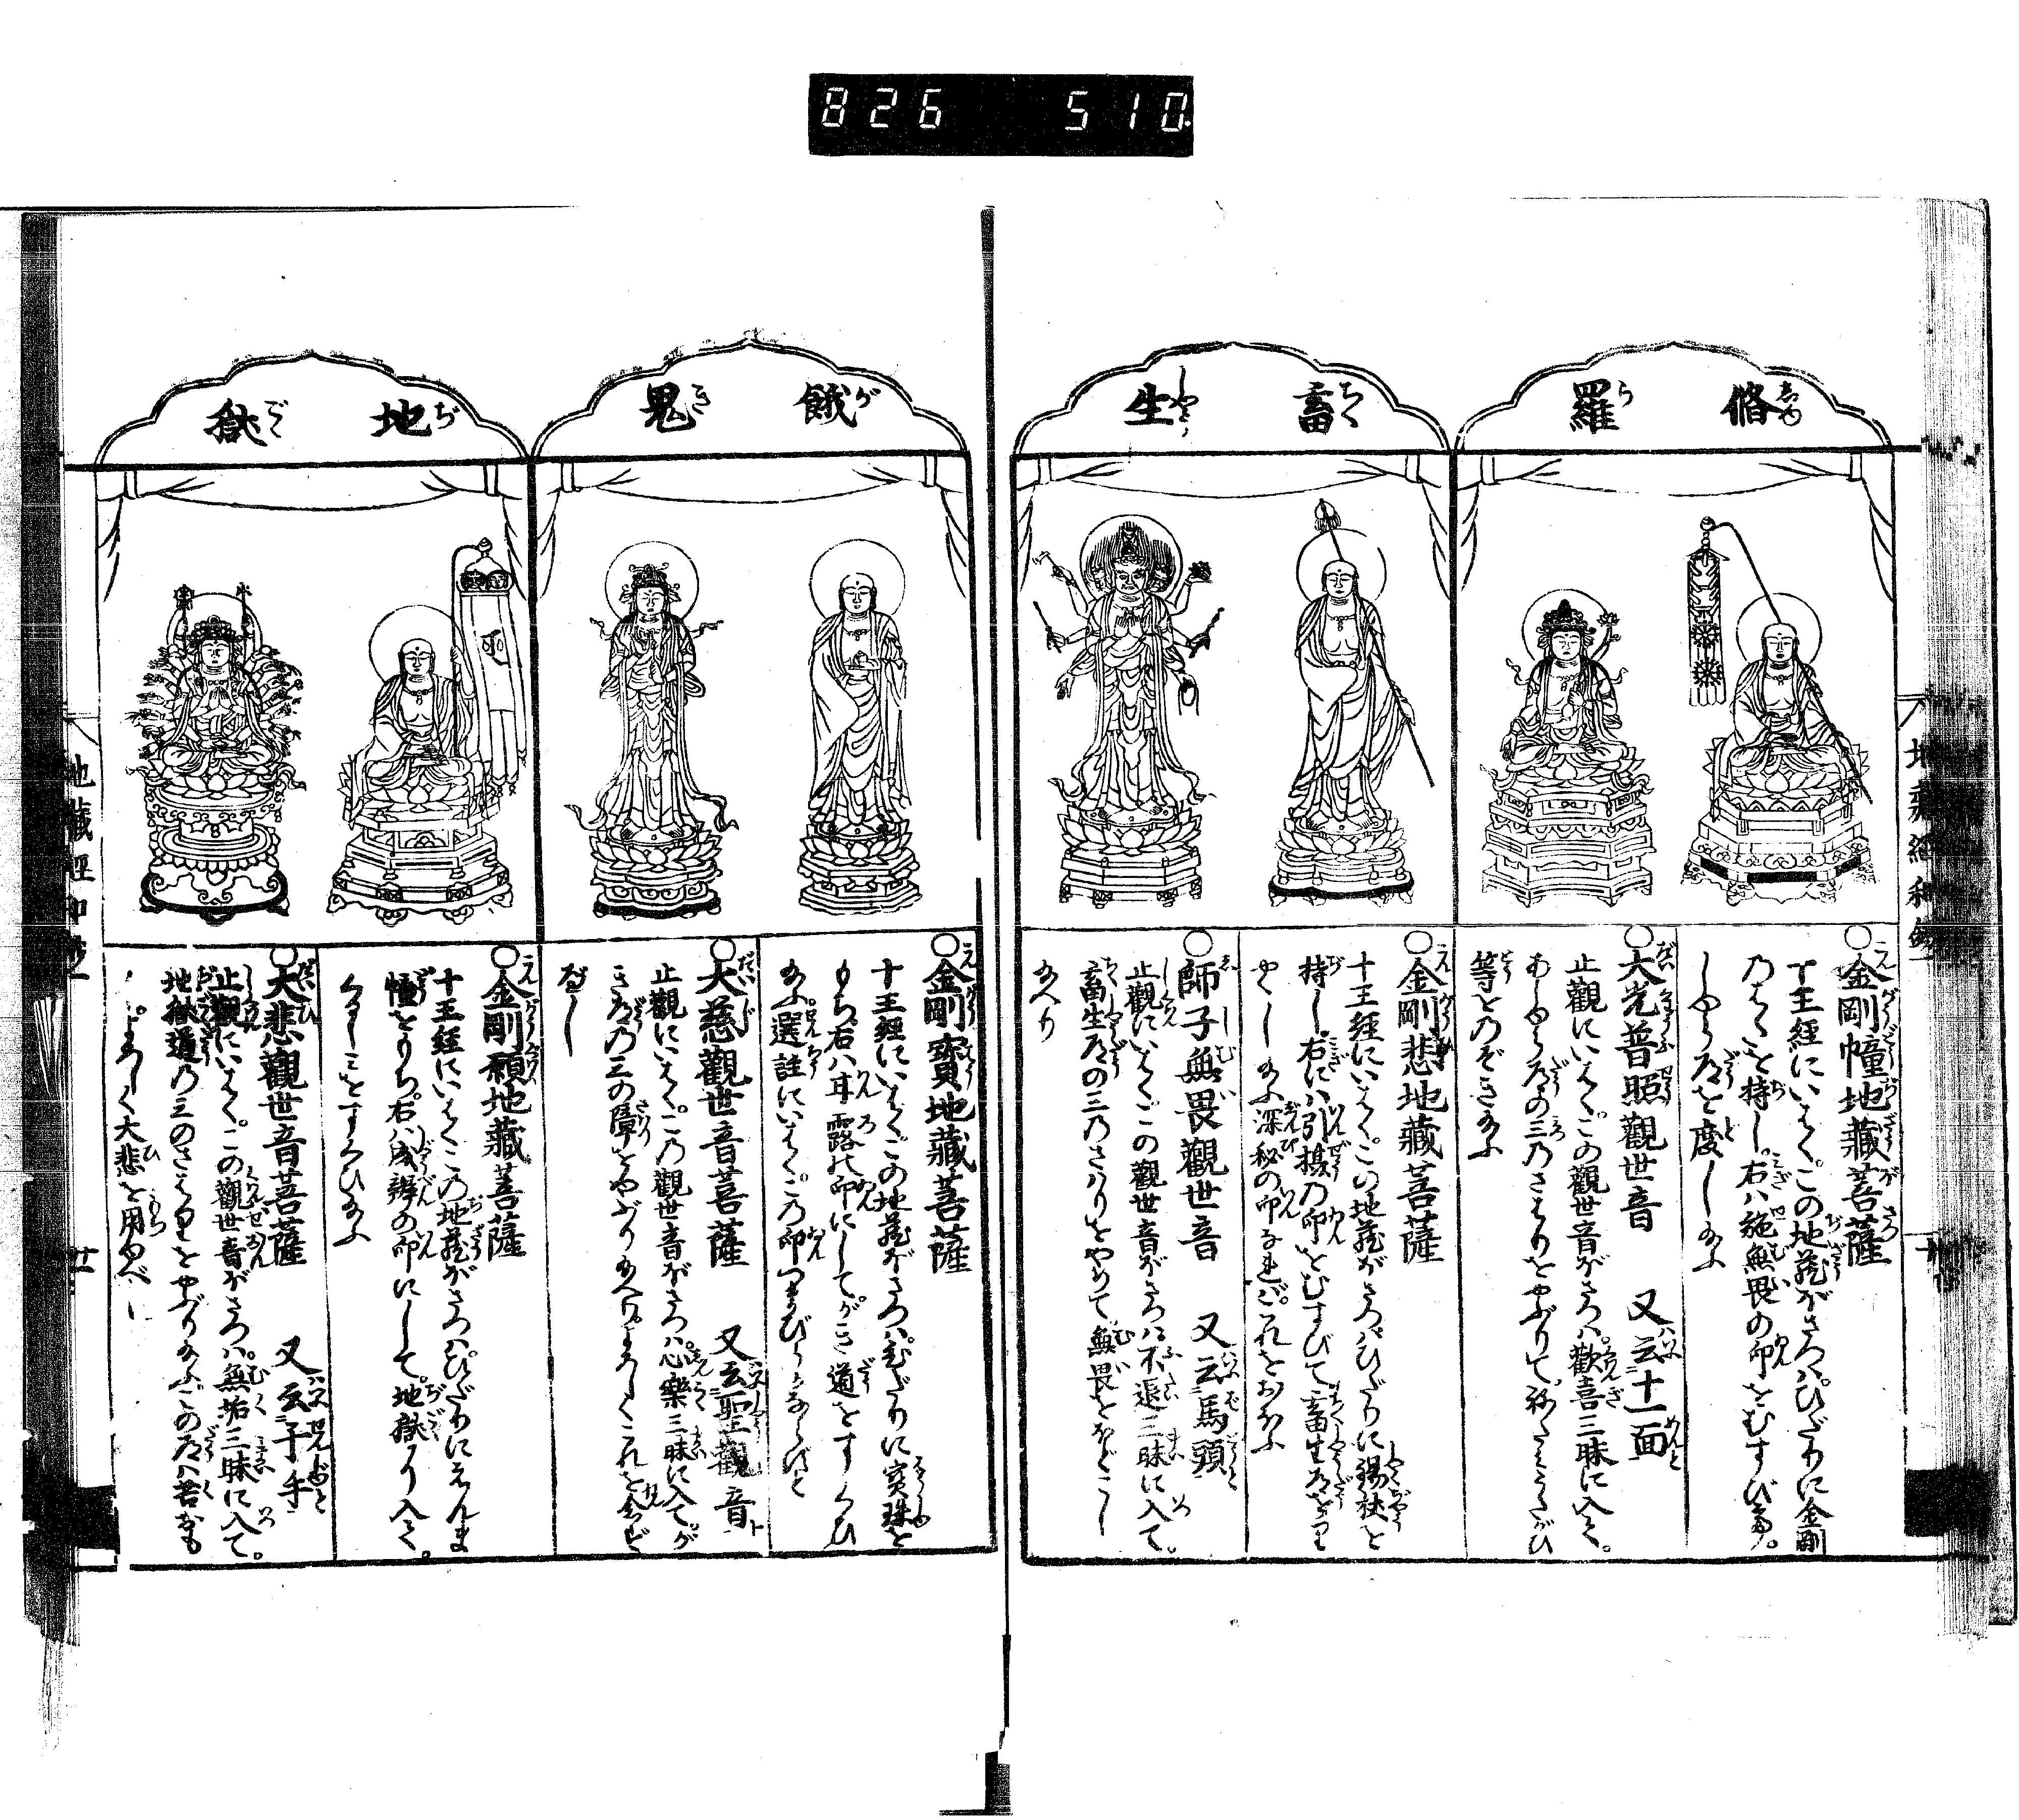 826 510
脩羅
畜生
餓鬼
地獄
○金剛幢地藏菩薩
十王経にいはくこの地蔵ぼさつハひだりに金剛
のはたを持し右ハ施無畏の印をむすび
しゆら道を度し給ふ
○大光普照觀世音 又云十一面
止觀にいはくこの觀世音ぼさつハ歡喜三昧に入て
あしゆら道の三のさはりをやぶりてねたみうたがひ
等をのぞき給ふ
○金剛悲地藏菩薩
十王経にいはくこの地蔵ぼさつハひだりに錫杖を
持し右にハ引攝の印をむすびて畜生道を
やくし給ふ深秘の印なれバこれをおほふ
○師子無畏觀世音 又云馬頭
止觀にいはくこの觀世音ぼさつハ不退三昧に入て
畜生道の三のさハりをやめて無畏をほどこし
給へり
○金剛寶地藏菩薩
十王経にいはくこの地蔵ぼさつハひだりに宝珠を
もち右ハ甘露の印にしてがき道をすくひ
給ふ選註にいはくこの印
○大慈觀世音菩薩 又云聖觀音
止觀にいはくこの觀世音ぼさつハ心樂三昧に入てが
き道の三の障をやぶり給へりよろしくこれを念ず
べし
○金剛願地藏菩薩
十王経にいはくこの地蔵ぼさつハひだりにゑんま
幢をもち右ハ成辨の印にして地獄に入て
くるしみをすくひ給ふ
○大悲觀世音菩薩 又云千手
止觀にいはくこの觀世音ぼさつハ無垢三昧に入て
地獄道の三のさはりをやぶり給ふこの道ハ苦おも
よろしく大悲を用ゆべし
地藏經和